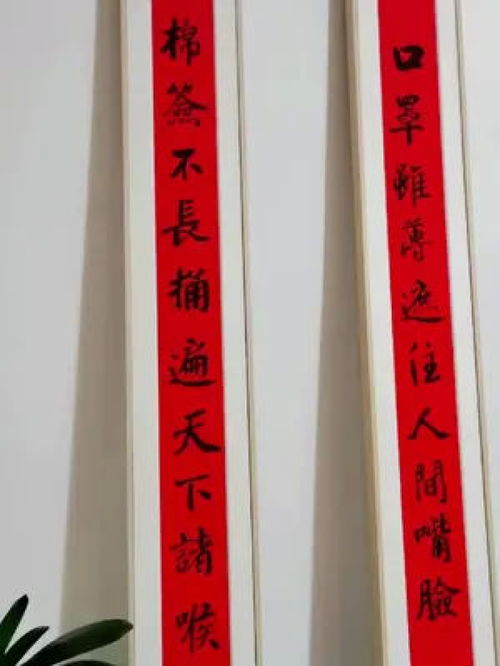 口罩雖薄遮住人間嘴臉
棉簽不長捅遍天下諸喉